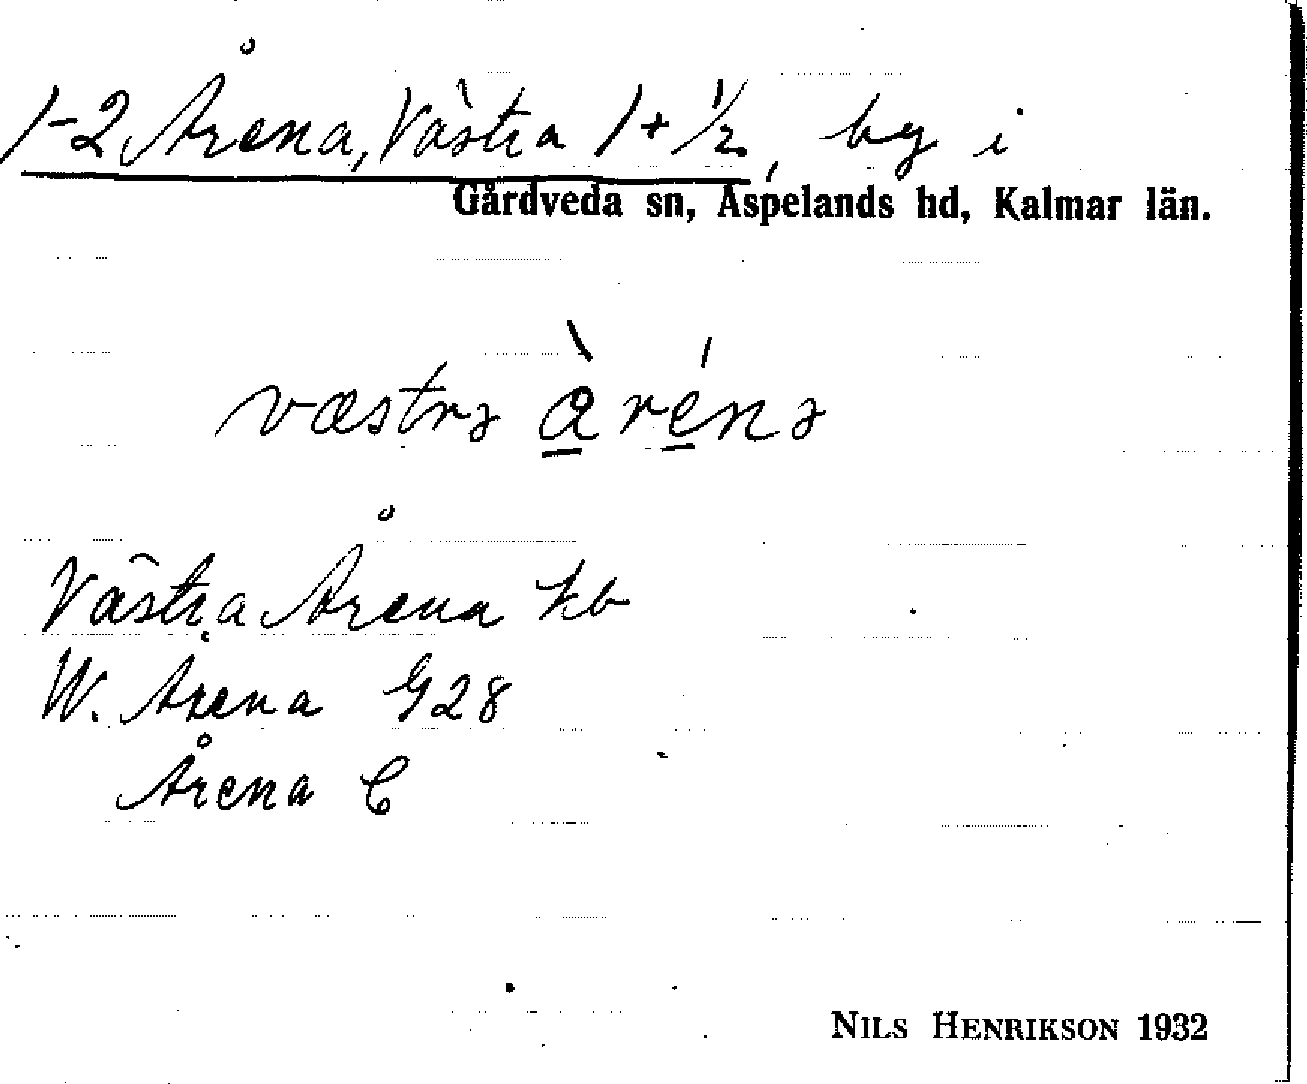 1-2 Årena, Västra 1 + 1/2, by i
Gårdveda sn, Aspelands hd, Kalmar län.
væstrə
Västra Årena kb
W. Årena G28
Årena C
NILS HENRIKSON 1932